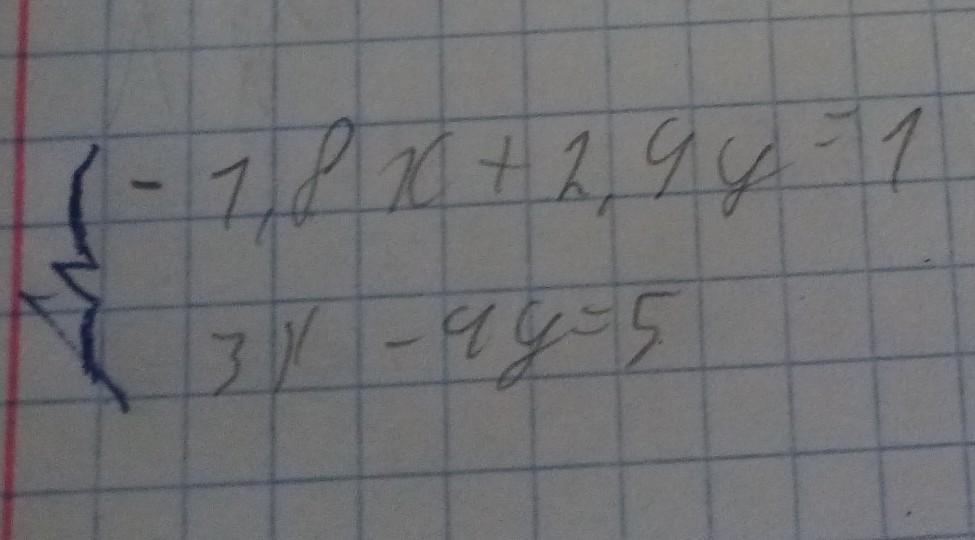 - 1,8x + 2,4y = 1
3x - 4y = 5